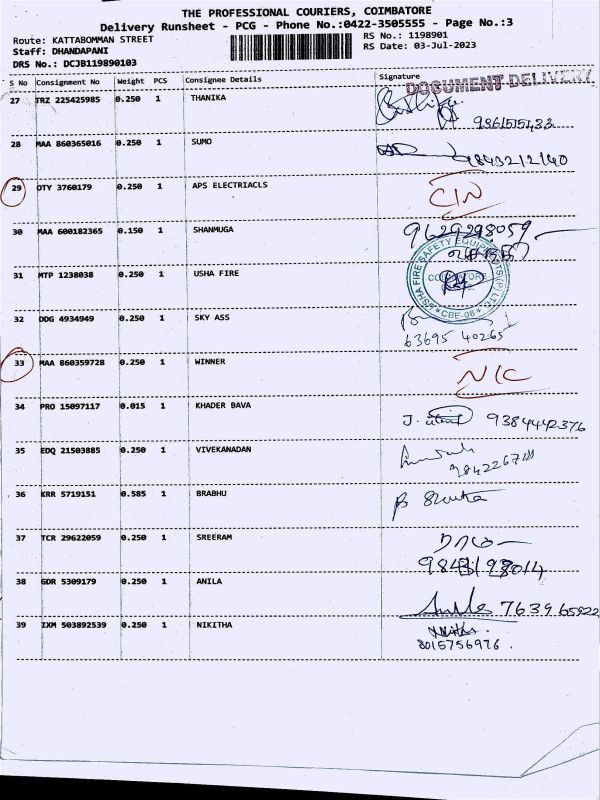 THE PROFESSIONAL COURIERS, COIMBATORE
Delivery Runsheet - PCG - Phone No.:0422-3505555 - Page No.:3
Route: KATTABOMMAN STREET
RS No.: 1198901
Staff: DHANDAPANI
RS Date: 03-Jul-2023
DRS No.: DCJB119890103
S No Consignment No Weight PCS Consignee Details Signature
DOCUMENT DELIVERY
27 TRZ 225425985 0.250 1 THANIKA
28 MAA 860365016 0.250 1 SUMO 9843212140
29 OTY 3760179 0.250 1 APS ELECTRIACLS CIN
30 MAA 600182365 0.150 1 SHANMUGA 9629298059
31 MTP 1238038 0.250 1 USHA FIRE
USHA FIRE SAFETY EQUIPMENTS (P) LTD
COIMBATORE
CBE-06
32 DDG 4934949 0.250 1 SKY ASS 63695 40265
33 MAA 860359728 0.250 1 WINNER N/C
34 PRO 15097117 0.015 1 KHADER BAVA J. 9384442376
35 EDQ 21503885 0.250 1 VIVEKANADAN
36 KRR 5719151 0.585 1 BRABHU
37 TCR 29622059 0.250 1 SREERAM
38 GDR 5309179 0.250 1 ANILA 763965922
39 IXM 503892539 0.250 1 NIKITHA
8015756976.